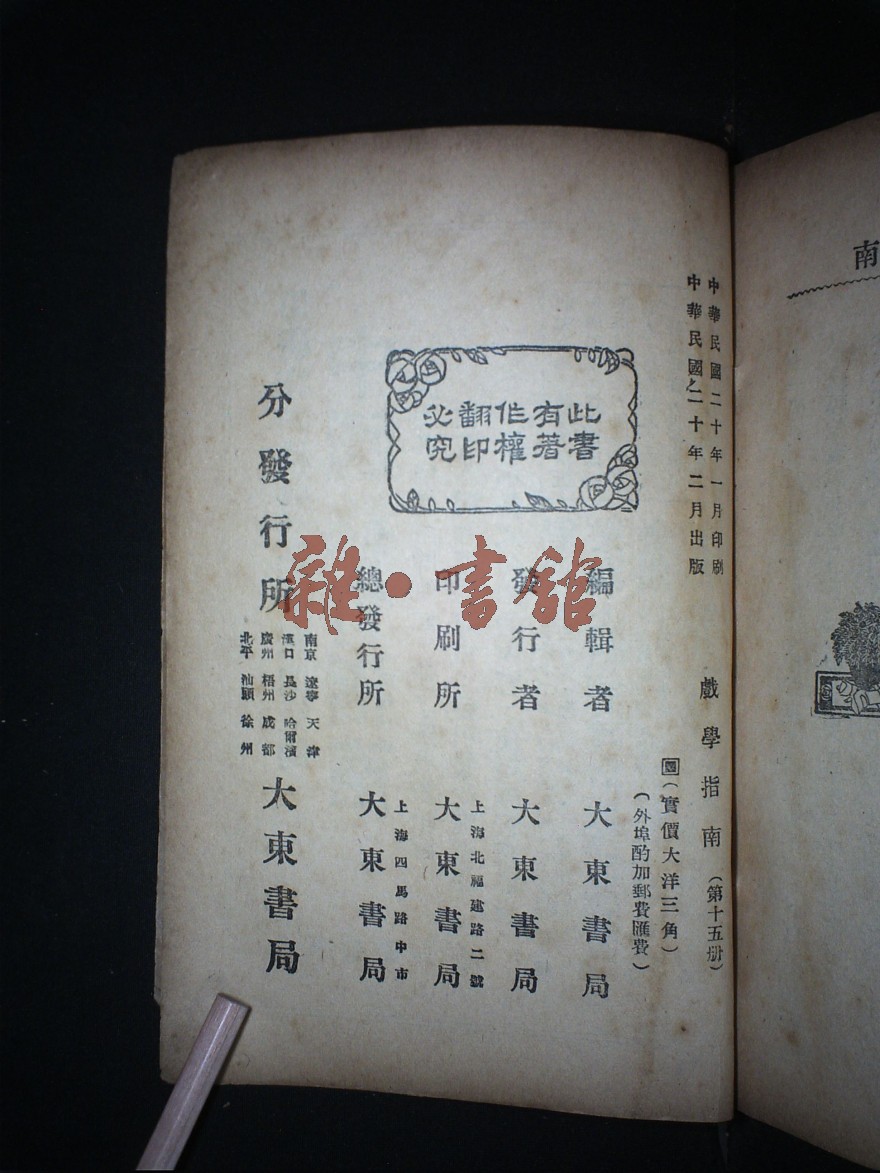 南
中華民國二十年一月印刷
中華民國二十年二月出版
戲學指南（第十五册）
（實價大洋三角）
（外埠酌加郵費匯費）
此書
有著
作權
翻印
必究
編輯者 大東書局
發行者 大東書局
上海北福建路二號
印刷所 大東書局
上海四馬路中市
總發行所 大東書局
分發行所
南京 遼寧 天津
漢口 長沙 哈爾濱
廣州 梧州 成都
北平 汕頭 徐州
大東書局
雜·書館